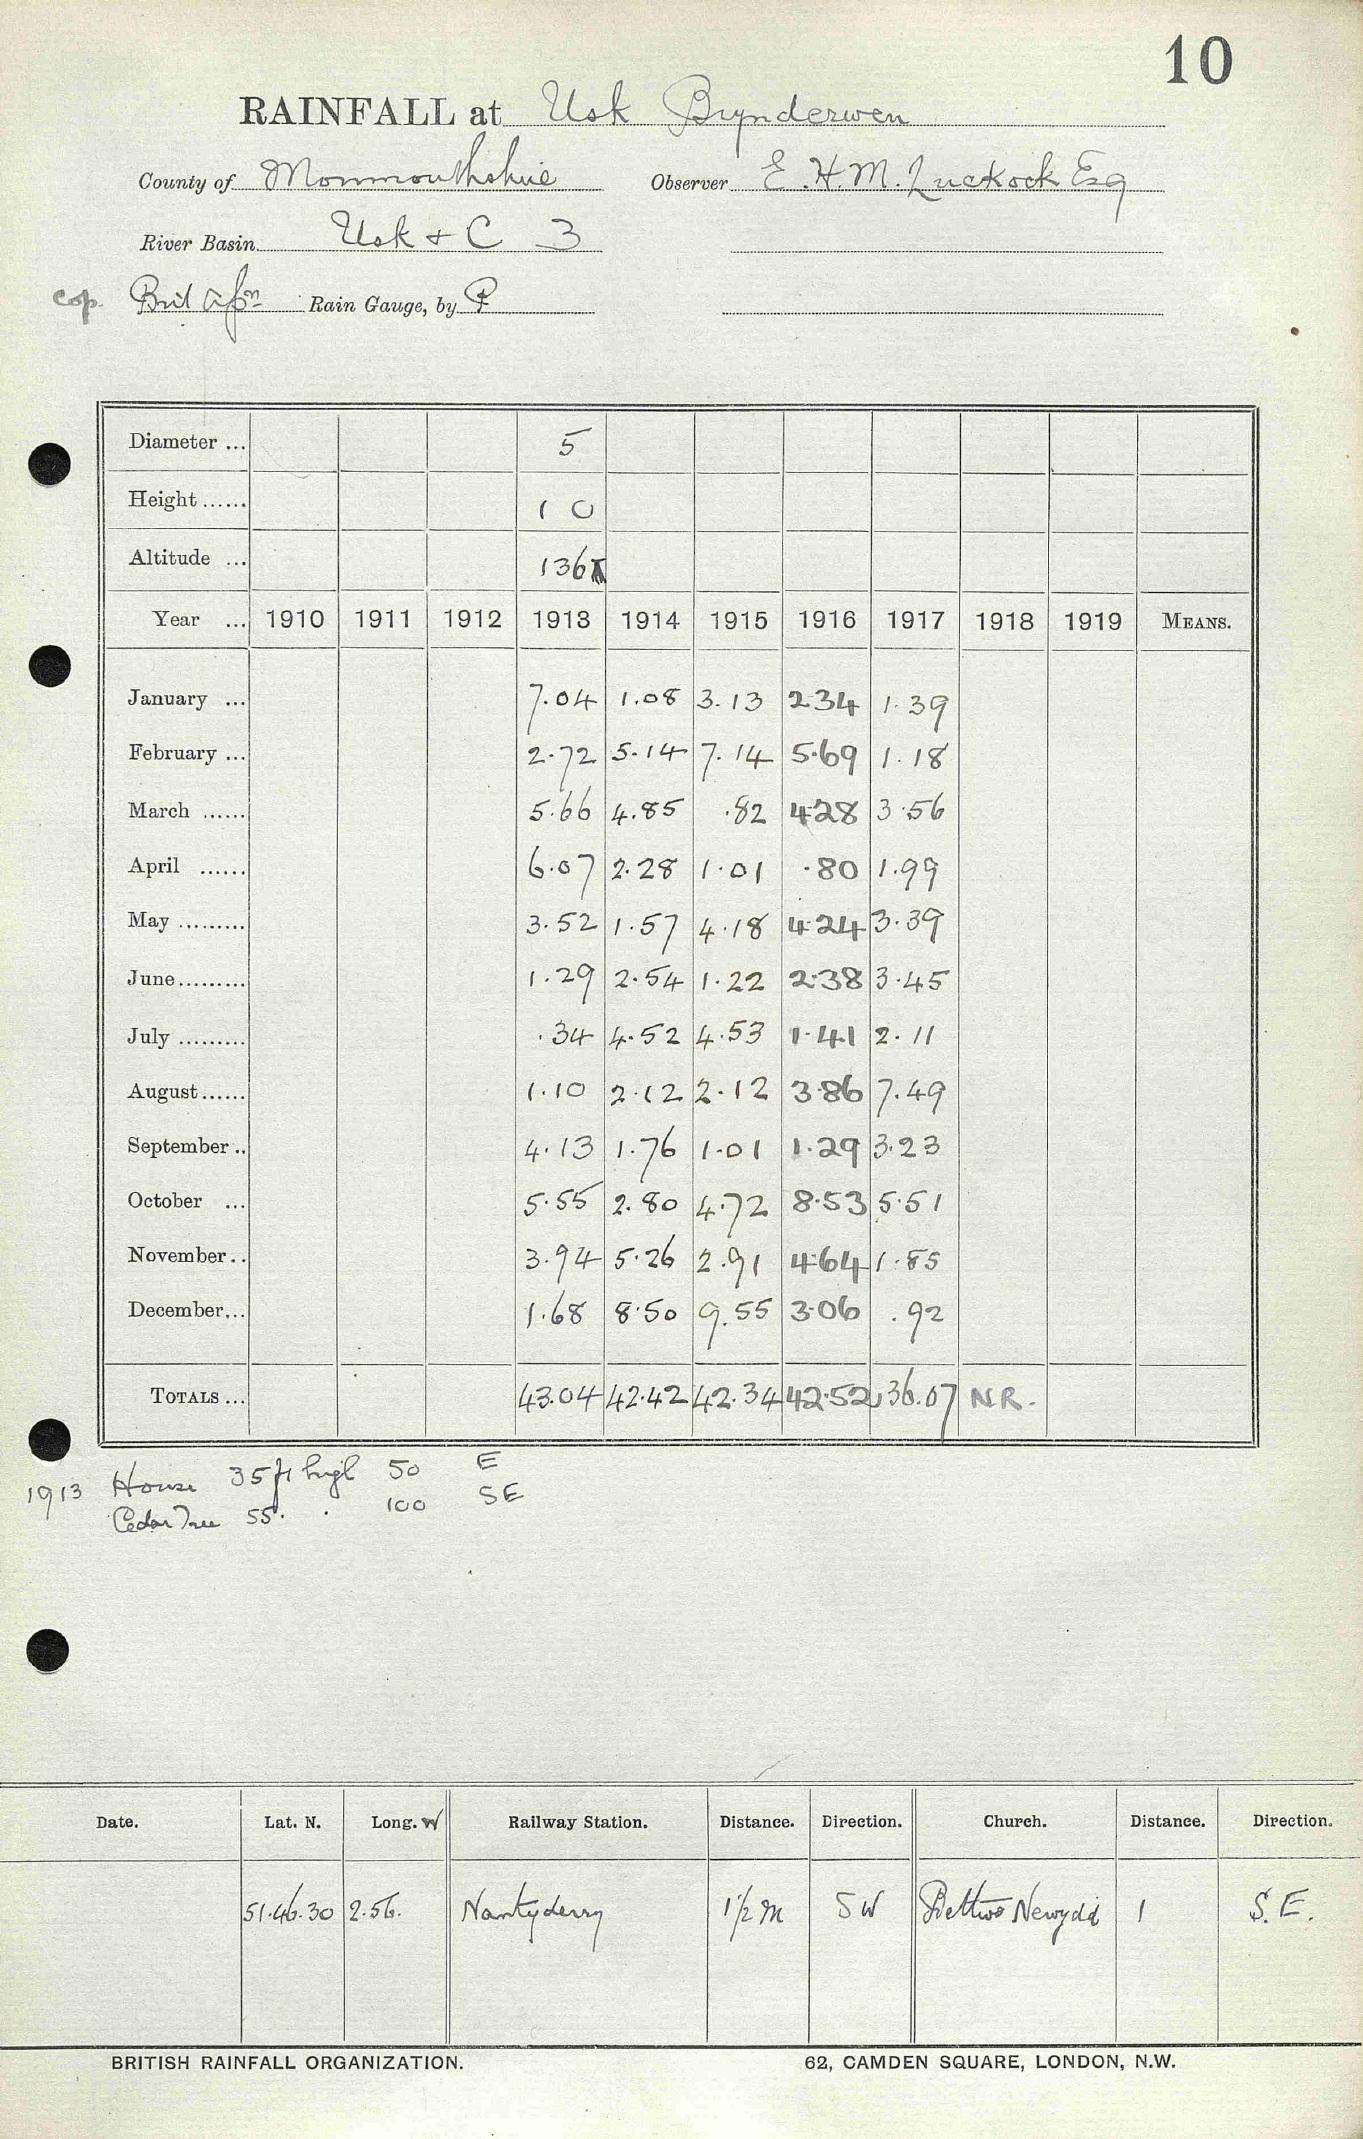 10
RAINFALL at Usk Brynderwen
County of Monmouthshire Observer E. H. M. Luckock Esq
River Basin Usk + C 3
cop. Brit Rain Gauge, by P
Diameter ... 5
Height ...... 10
Altitude ... 136
Year ... 1910 1911 1912 1913 1914 1915 1916 1917 1918 1919 MEANS.
January ... 7.04 1.08 3.13 2.34 1.39
February ... 2.72 5.14 7.14 5.69 1.18
March ...... 5.66 4.85 .82 4.28 3.56
April ...... 6.07 2.28 1.01 .80 1.99
May ......... 3.52 1.57 4.18 4.24 3.39
June ......... 1.29 2.54 1.22 2.38 3.45
July ......... .34 4.52 4.53 1.41 2.11
August ...... 1.10 2.12 2.12 3.86 7.49
September .. 4.13 1.76 1.01 1.29 3.23
October ... 5.55 2.80 4.72 8.53 5.51
November .. 3.94 5.26 2.91 4.64 1.85
December ... 1.68 8.50 9.55 3.06 .92
TOTALS ... 43.04 42.42 42.34 42.52 36.07 N.R.
1913 House 35 ft high 50 E
Cedar Tree 55 . . 100 SE
Date. Lat. N. Long. W Railway Station. Distance. Direction. Church. Distance. Direction.
51.46.30 2.56. Nantyderry 1½ m SW Bettws Newydd 1 S.E.
BRITISH RAINFALL ORGANIZATION. 62, CAMDEN SQUARE, LONDON, N.W.